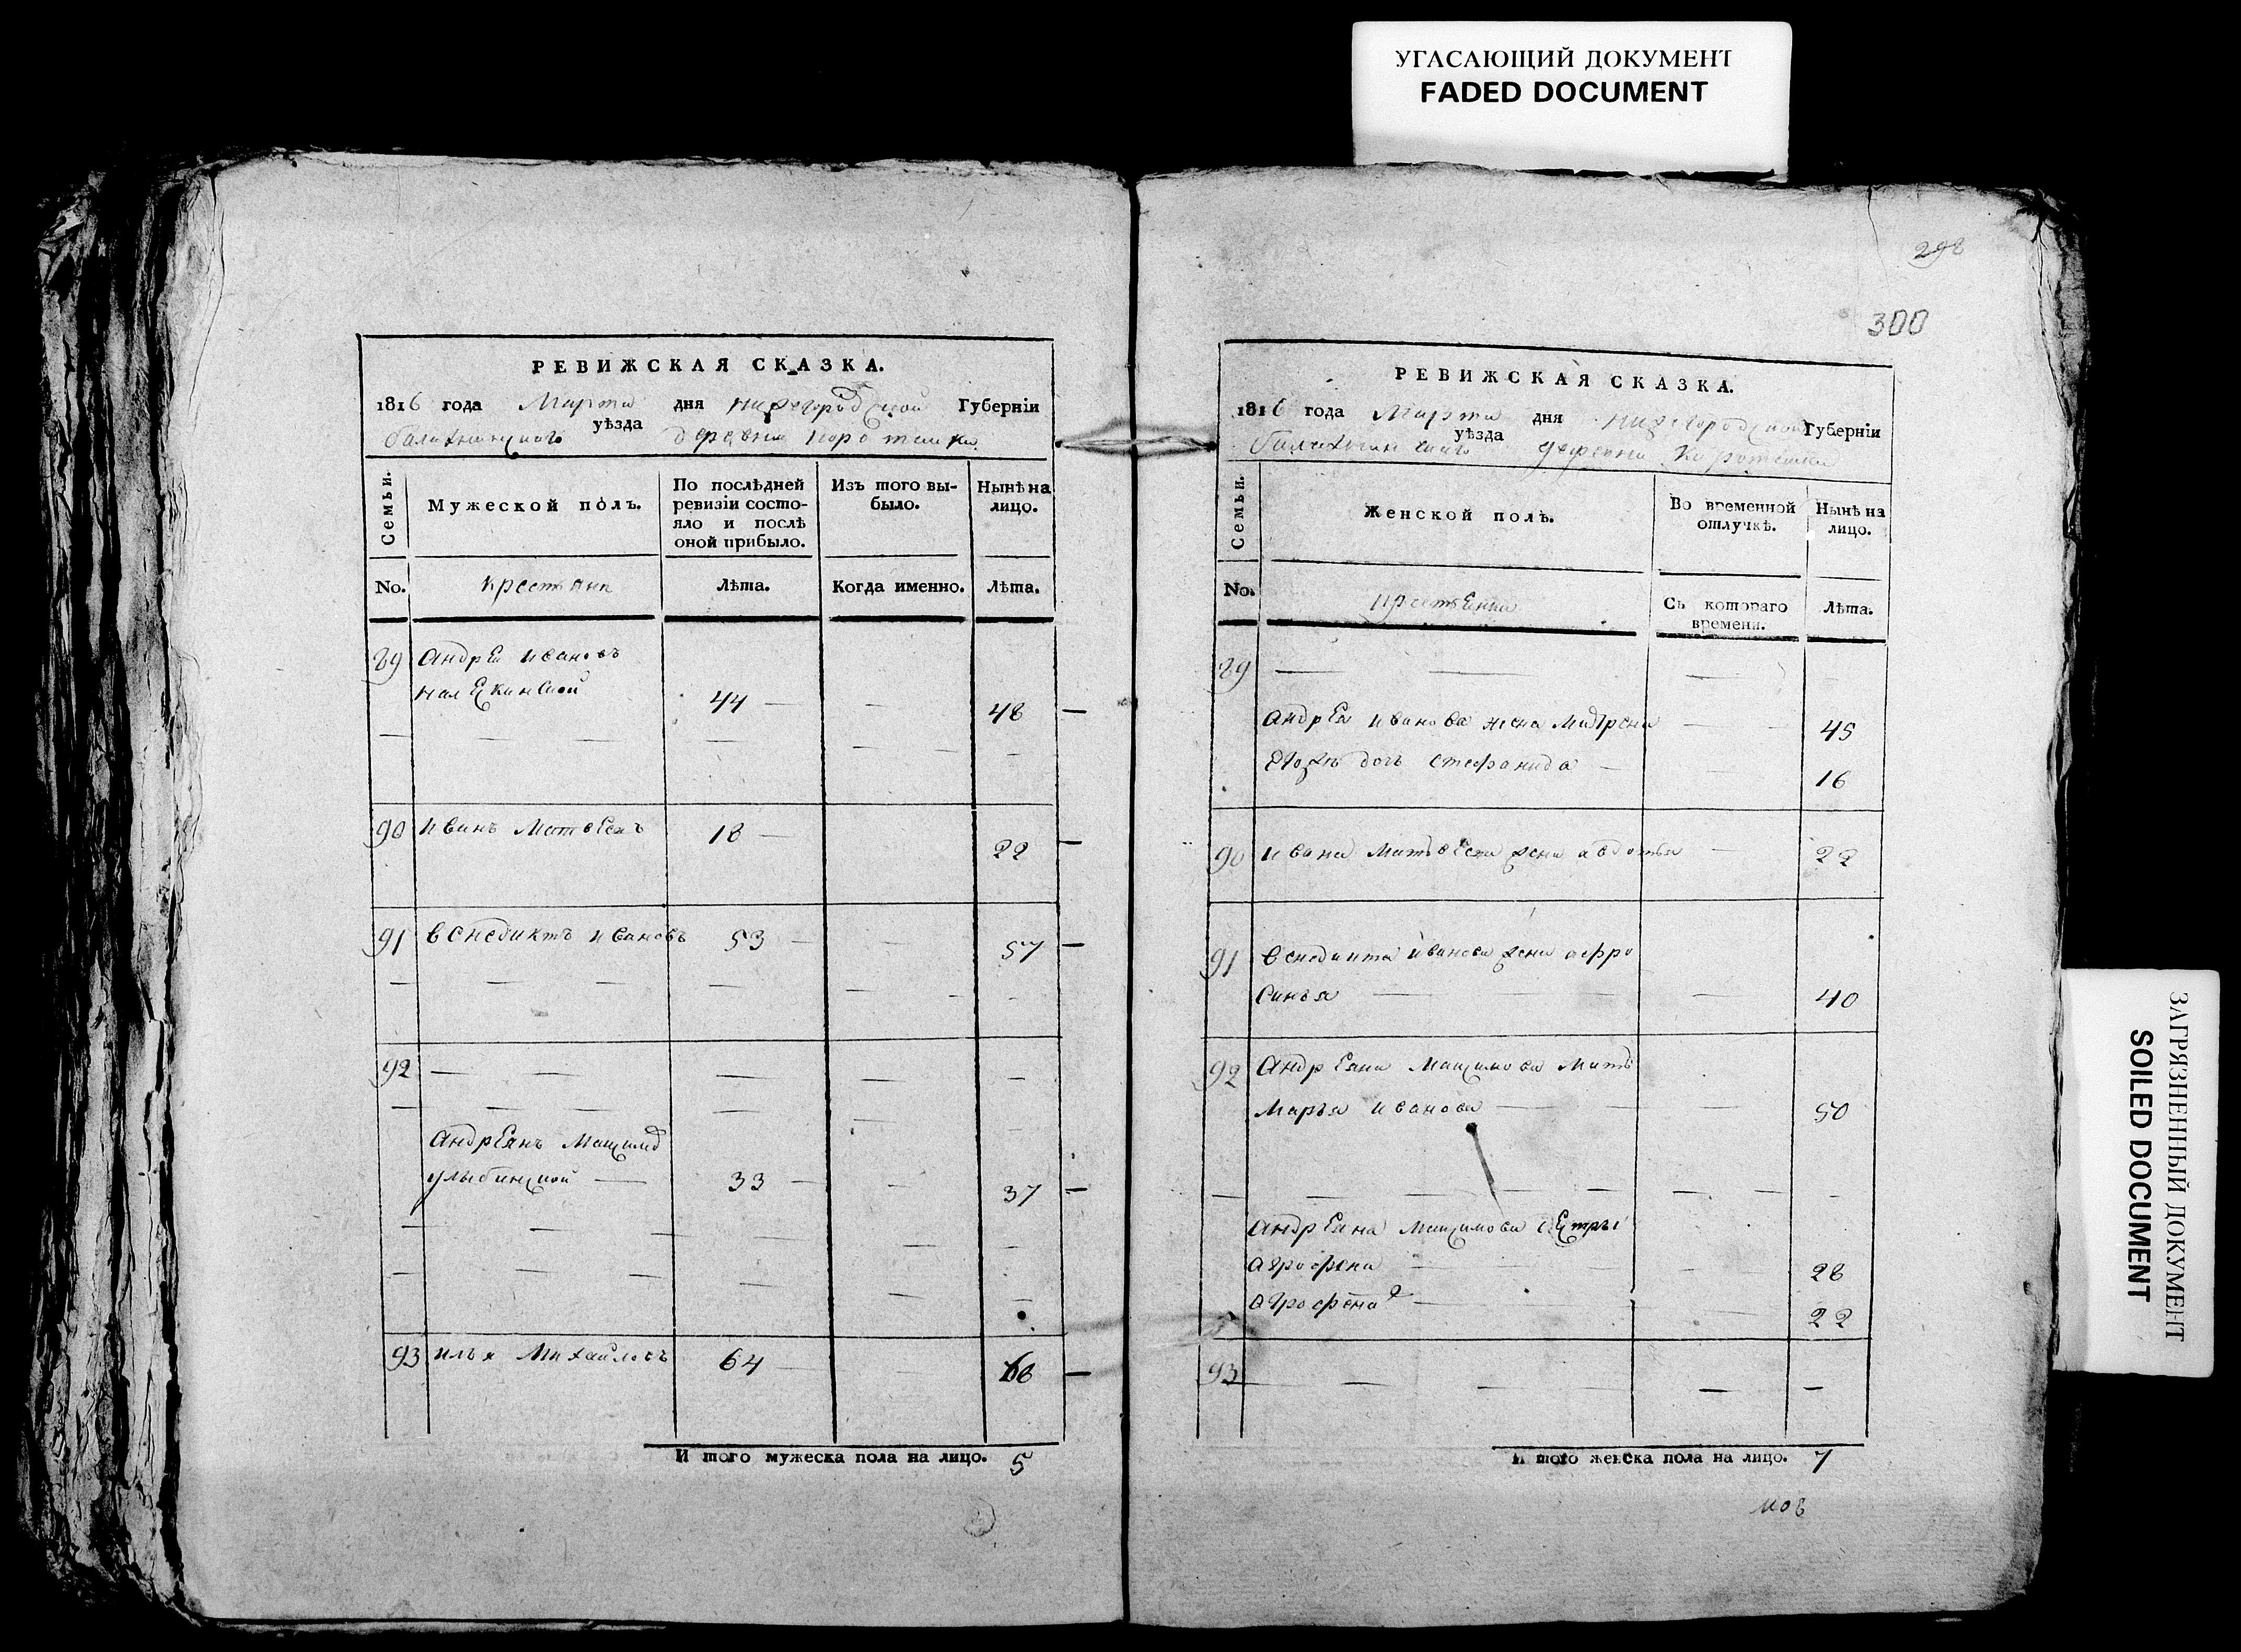 УГАСАЮЩИЙ ДОКУМЕНТ
FADED DOCUMENT
РЕВИЖСКАЯ СКАЗКА.
1816 года Марта дня нижегородской Губерніи
балахнинского уѣзда деревня коротайка
Семьи.
Мужеской полъ.
По послѣдней ревизіи состояло и послѣ оной прибыло.
Изъ того выбыло.
Нынѣ на лицо.
No.
крестьяне
Лѣта.
Когда именно.
Лѣта.
89 андрѣй ивановъ
44 48
90 иванъ Матвѣевъ 18 22
91 венедиктъ ивановъ 53 57
92
андрѣянъ Максимов
улыбинской 33 37
93 илья Михайловъ 64 68
И того мужеска пола на лицо. 5
298
300
РЕВИЖСКАЯ СКАЗКА.
1816 года Марта дня нижегородской Губерніи
балахнинского уѣзда деревни
Семьи.
Женской полъ.
Во временной отлучкѣ.
Нынѣ на лицо.
No.
Съ котораго времени.
Лѣта.
89
андрѣя иванова жена Матрена 45
дочь стефанида 16
90 ивана Матвѣева жена авдотья 22
91 венедикта иванова жена афро
синья 40
92 андрѣяна Максимова мать
Марья иванова 50
андрѣяна Максимова сестры
аграфена 28
аграфена 2 22
93
И того женска пола на лицо. 7
ЗАГРЯЗНЕННЫЙ ДОКУМЕНТ
SOILED DOCUMENT